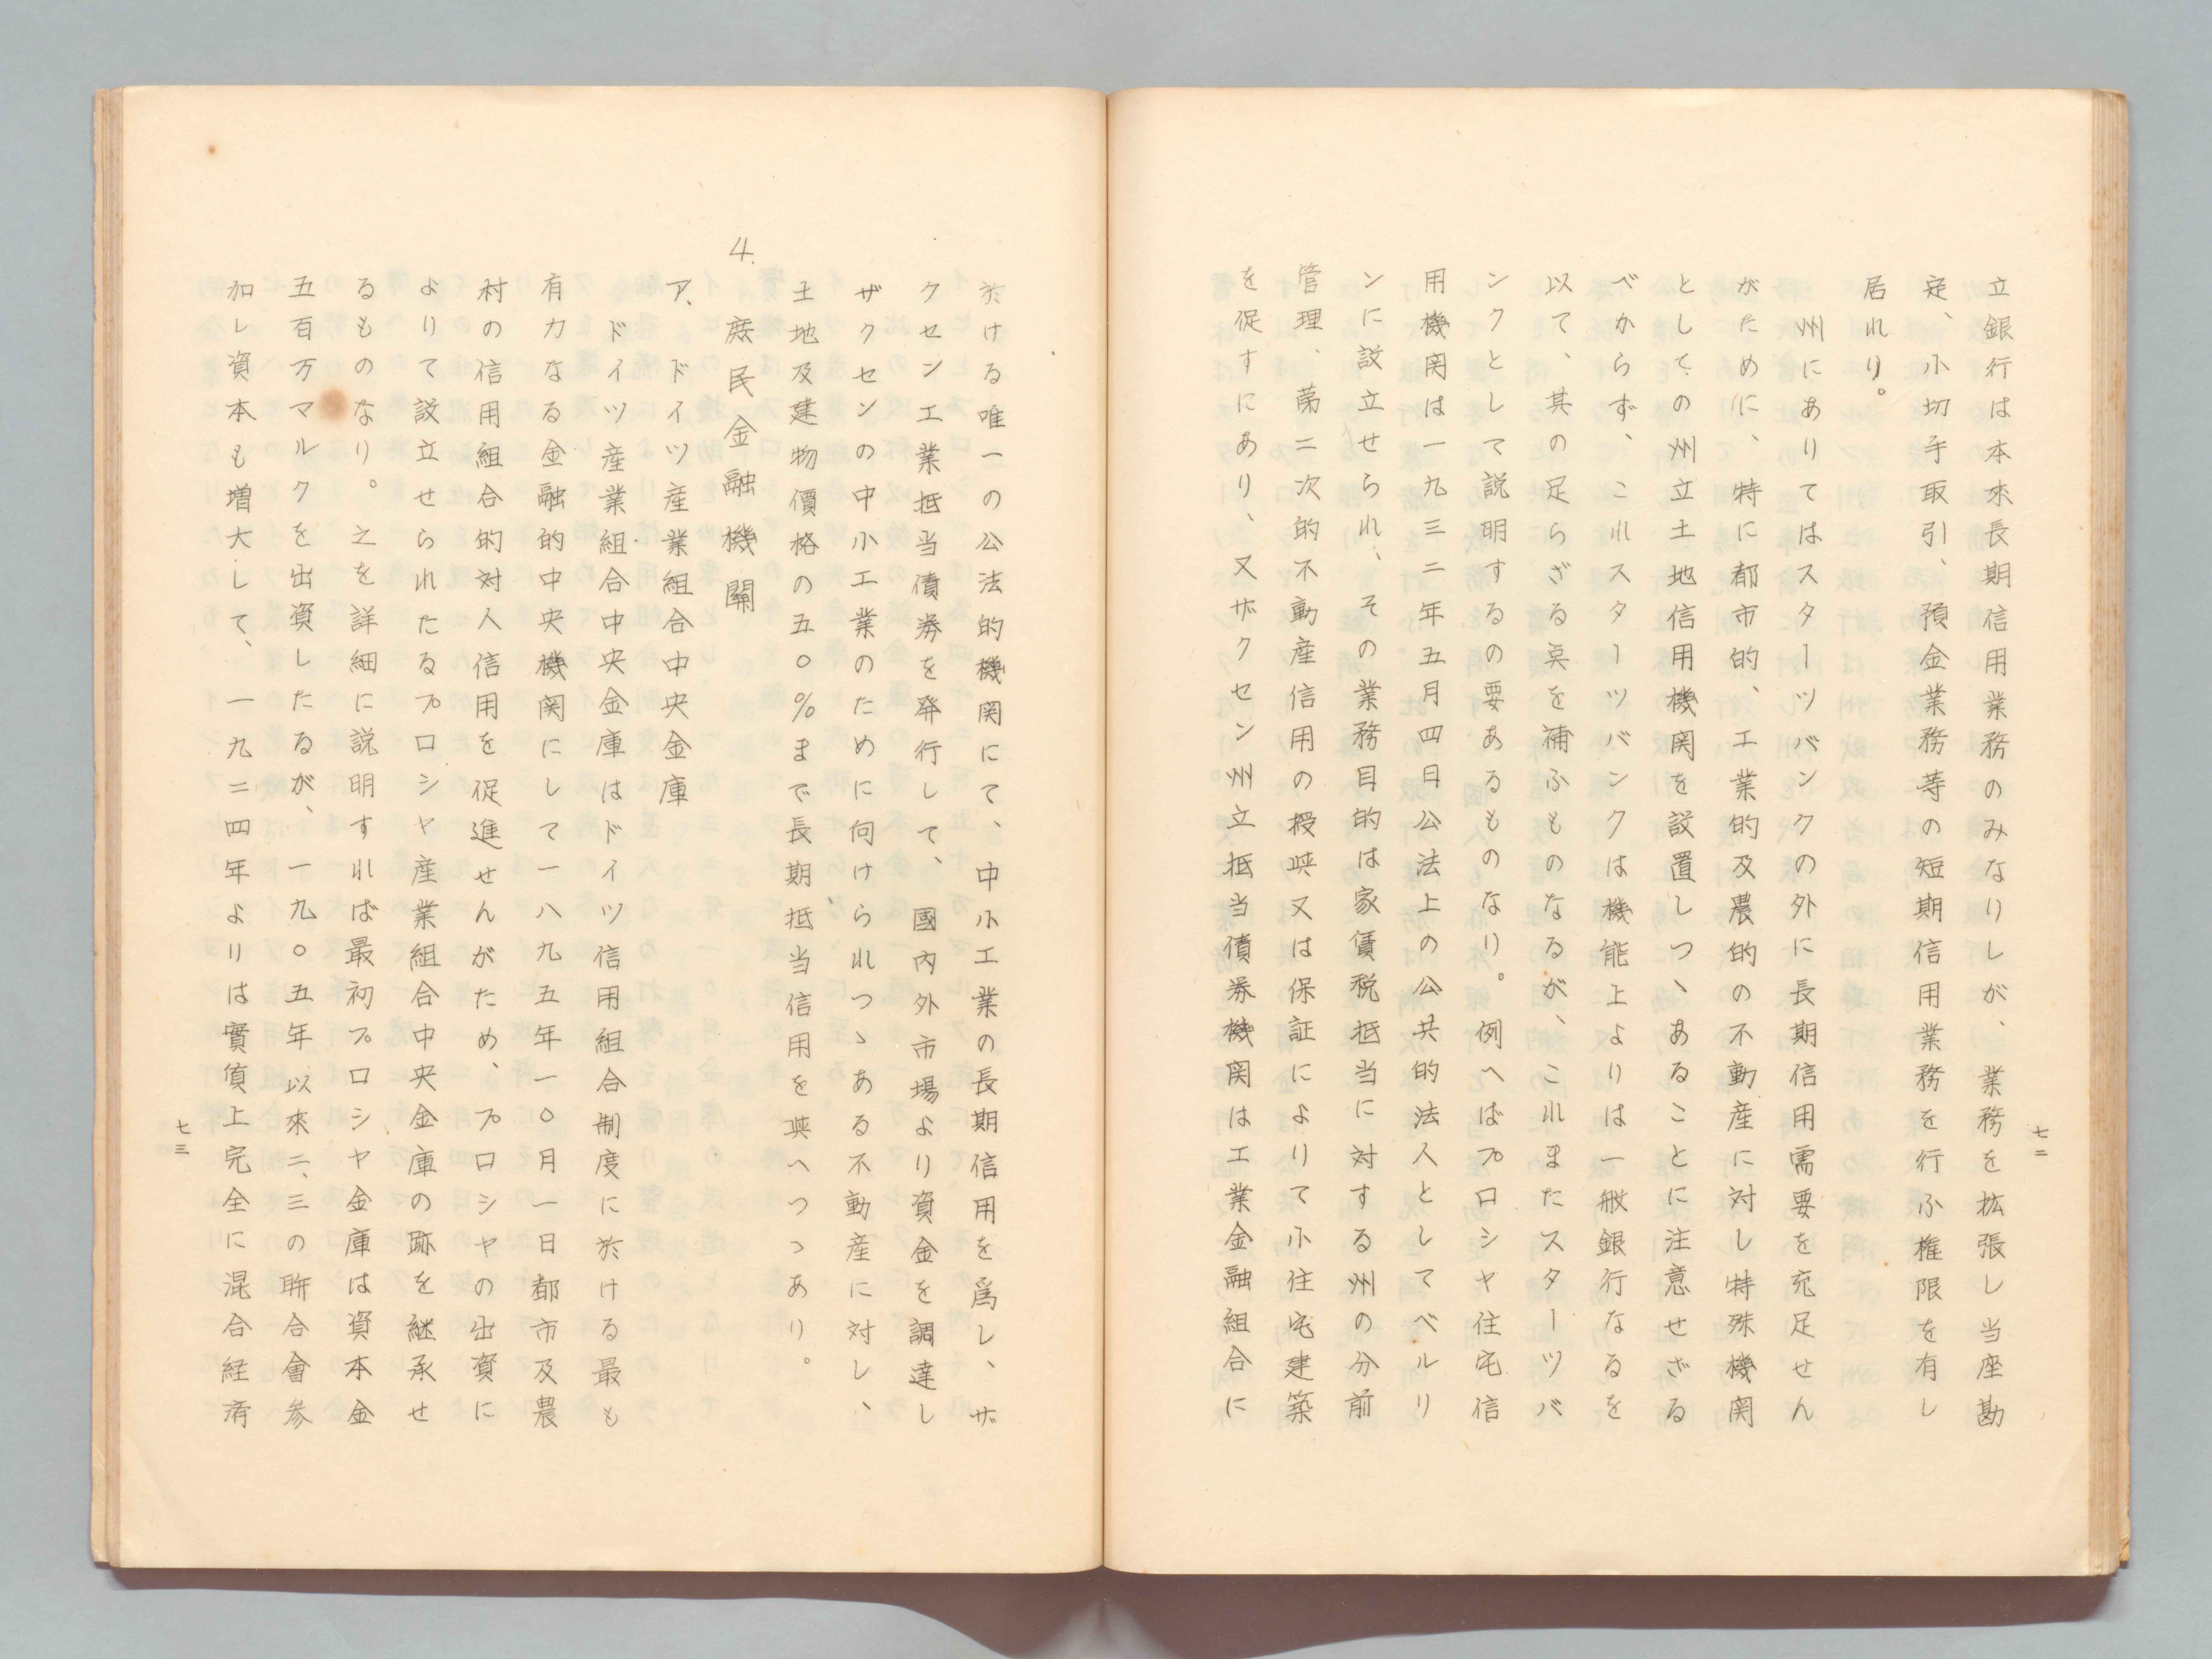 立銀行は本来長期信用業務のみなりしが、業務を拡張し当座勘
定、小切手取引、預金業務等の短期信用業務を行ふ権限を有し
居れり。
州にありてはスターツバンクの外に長期信用需要を充足せん
がために、特に都市的、工業的及農的の不動産に対し特殊機関
としての州立土地信用機関を設置しつゝあることに注意せざる
べからず、これスターツバンクは機能上よりは一般銀行なるを
以て、其の足らざる点を補ふものなるが、これまたスターツバ
ンクとして説明するの要あるものなり。例へばプロシヤ住宅信
用機関は一九三二年五月四日公法上の公共的法人としてベルリ
ンに設立せられ、その業務目的は家賃税抵当に対する州の分前
管理、第二次的不動産信用の授與又は保証によりて小住宅建築
を促すにあり、又ザクセン州立抵当債券機関は工業金融組合に
七二
於ける唯一の公法的機関にて、中小工業の長期信用を爲し、ザ
クセン工業抵当債券を発行して、國内外市場より資金を調達し
ザクセンの中小工業のために向けられつゝある不動産に対し、
土地及建物價格の五〇％まで長期抵当信用を與へつゝあり。
4. 庶民金融機關
ア、ドイツ産業組合中央金庫
ドイツ産業組合中央金庫はドイツ信用組合制度に於ける最も
有力なる金融的中央機関にして一八九五年一〇月一日都市及農
村の信用組合的対人信用を促進せんがため、プロシヤの出資に
よりて設立せられたるプロシヤ産業組合中央金庫の跡を継承せ
るものなり。之を詳細に説明すれば最初プロシヤ金庫は資本金
五百万マルクを出資したるが、一九〇五年以來二、三の聯合會参
加し資本も増大して、一九二四年よりは實質上完全に混合経済
七三